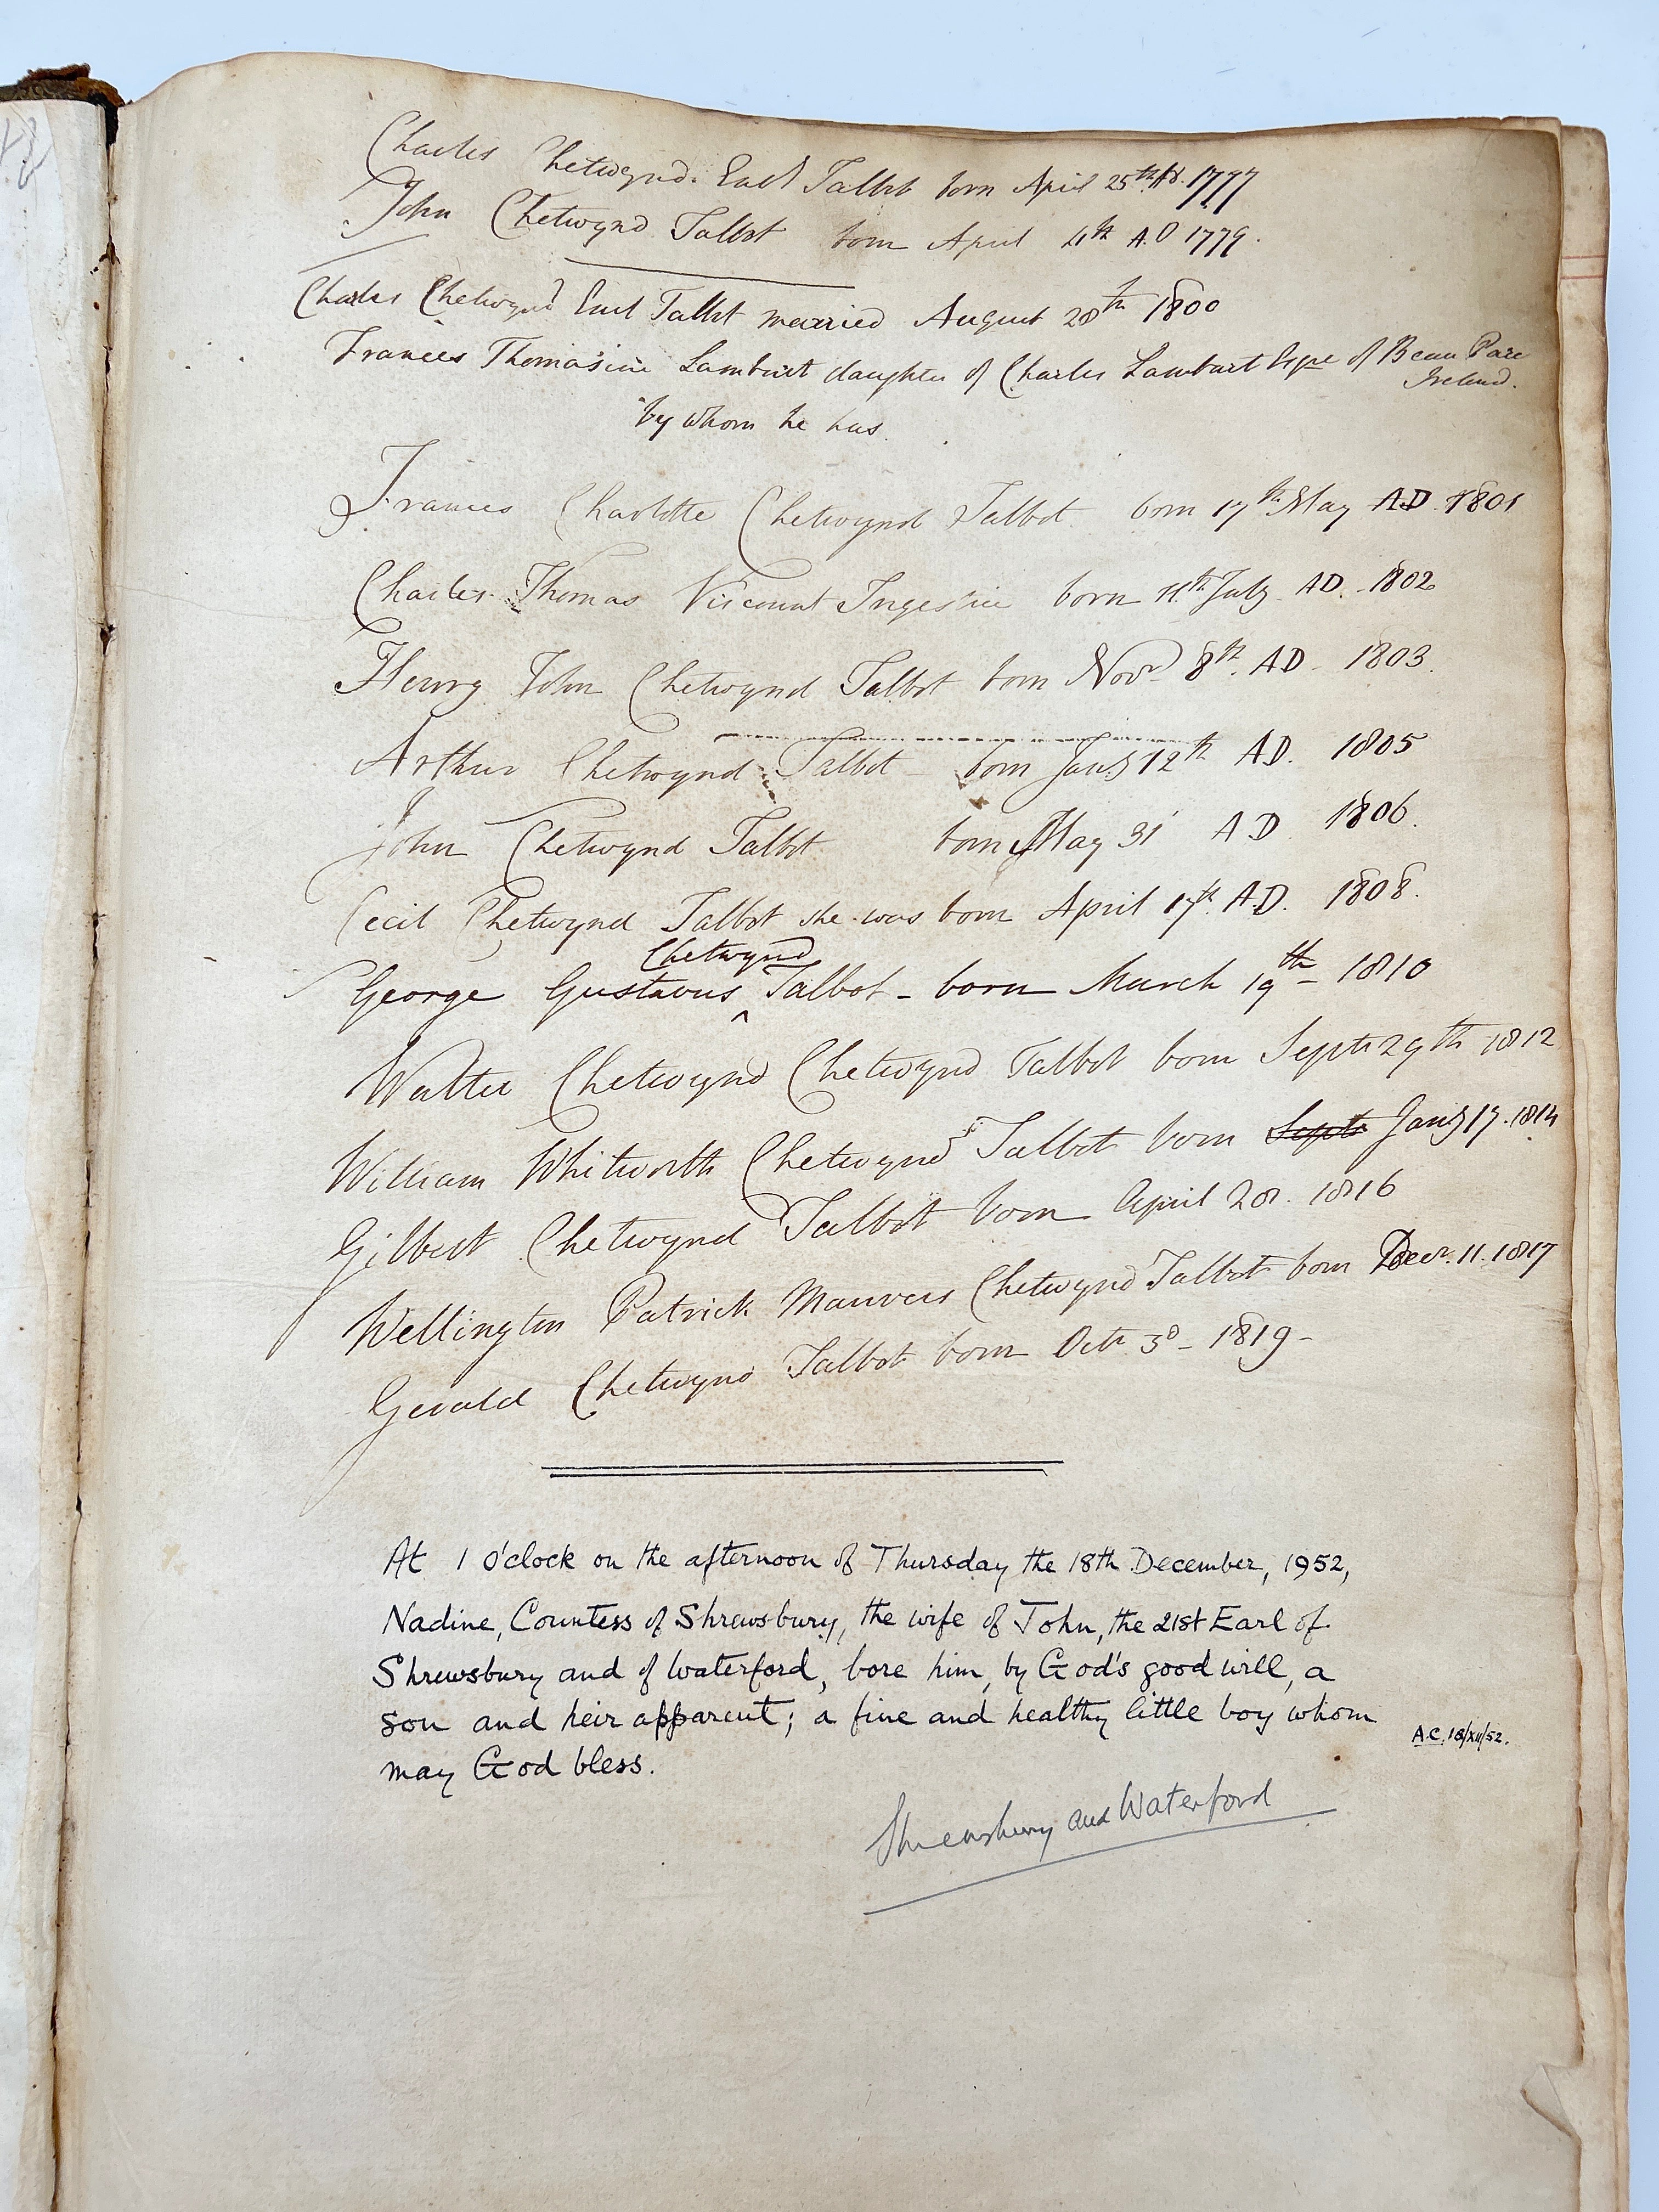 Charles Chetwynd. Earl Talbot born April 25th AD. 1777
John Chetwynd Talbot born April 4th A.D 1779.
Charles Chetwynd Earl Talbot married August 28th 1800
Frances Thomasine Lambart daughter of Charles Lambart Esqre of Beau Parc
Ireland.
by whom he has.
Frances Charlotte Chetwynd Talbot born 17th May AD. 1801
Charles Thomas Viscount Ingestrie born 11th July AD. 1802
Henry John Chetwynd Talbot born Novr 8th. AD. 1803.
Arthur Chetwynd Talbot born Jany 12th AD. 1805
John Chetwynd Talbot born May 31 AD 1806.
Cecil Chetwynd Talbot she was born April 17th. AD. 1808.
Chetwynd
George Gustavus ^ Talbot - born March 19th - 1810
Walter Chetwynd Chetwynd Talbot born Septr 29th 1812
William Whitworth Chetwynd Talbot born Septr Jany 17. 1814
Gilbert Chetwynd Talbot born April 20. 1816
Wellington Patrick Manvers Chetwynd Talbot born Decr. 11. 1817
Gerald Chetwynd Talbot born Octr 3d - 1819 -
At 1 o'clock on the afternoon of Thursday the 18th December, 1952,
Nadine, Countess of Shrewsbury, the wife of John, the 21st Earl of
Shrewsbury and of Waterford, bore him, by God's good will, a
son and heir apparent; a fine and healthy little boy whom
A.C. 18/XII/52.
may God bless.
Shrewsbury and Waterford